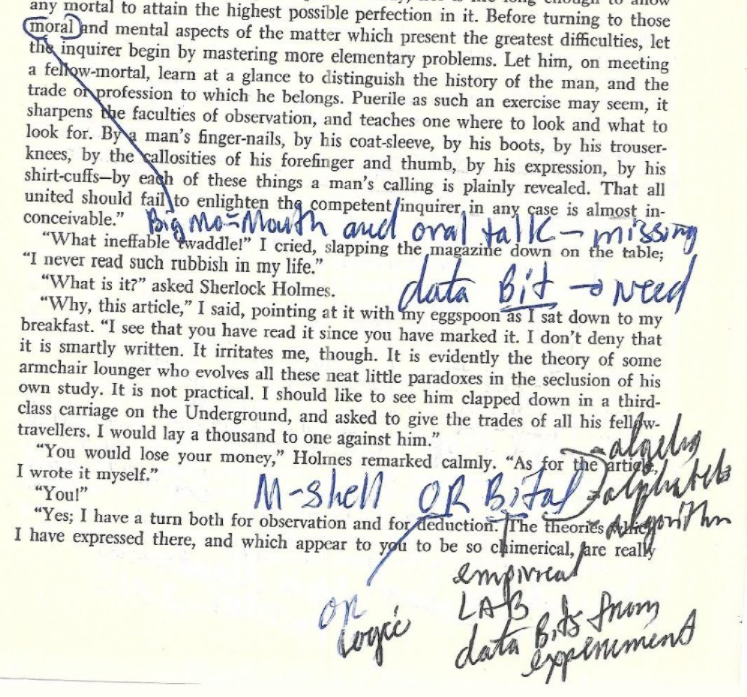 any mortal to attain the highest possible perfection in it. Before turning to those
moral and mental aspects of the matter which present the greatest difficulties, let
the inquirer begin by mastering more elementary problems. Let him, on meeting
a fellow-mortal, learn at a glance to distinguish the history of the man, and the
trade or profession to which he belongs. Puerile as such an exercise may seem, it
sharpens the faculties of observation, and teaches one where to look and what to
look for. By a man's finger-nails, by his coat-sleeve, by his boots, by his trouser-
knees, by the callosities of his forefinger and thumb, by his expression, by his
shirt-cuffs—by each of these things a man's calling is plainly revealed. That all
united should fail to enlighten the competent inquirer in any case is almost in-
conceivable."
Big Mo=Mouth and oral talk – missing
"What ineffable twaddle!" I cried, slapping the magazine down on the table;
"I never read such rubbish in my life."
data Bit → need
"What is it?" asked Sherlock Holmes.
"Why, this article," I said, pointing at it with my eggspoon as I sat down to my
breakfast. "I see that you have read it since you have marked it. I don't deny that
it is smartly written. It irritates me, though. It is evidently the theory of some
armchair lounger who evolves all these neat little paradoxes in the seclusion of his
own study. It is not practical. I should like to see him clapped down in a third-
class carriage on the Underground, and asked to give the trades of all his fellow-
travellers. I would lay a thousand to one against him."
"You would lose your money," Holmes remarked calmly. "As for the article,
I wrote it myself."
"You!"
M-shell OR Bital
- algebra
- alphabets
- algorithm
"Yes; I have a turn both for observation and for deduction. The theories which
I have expressed there, and which appear to you to be so chimerical, are really
OR
logic
empirical
LAB
data Bits from
experiment